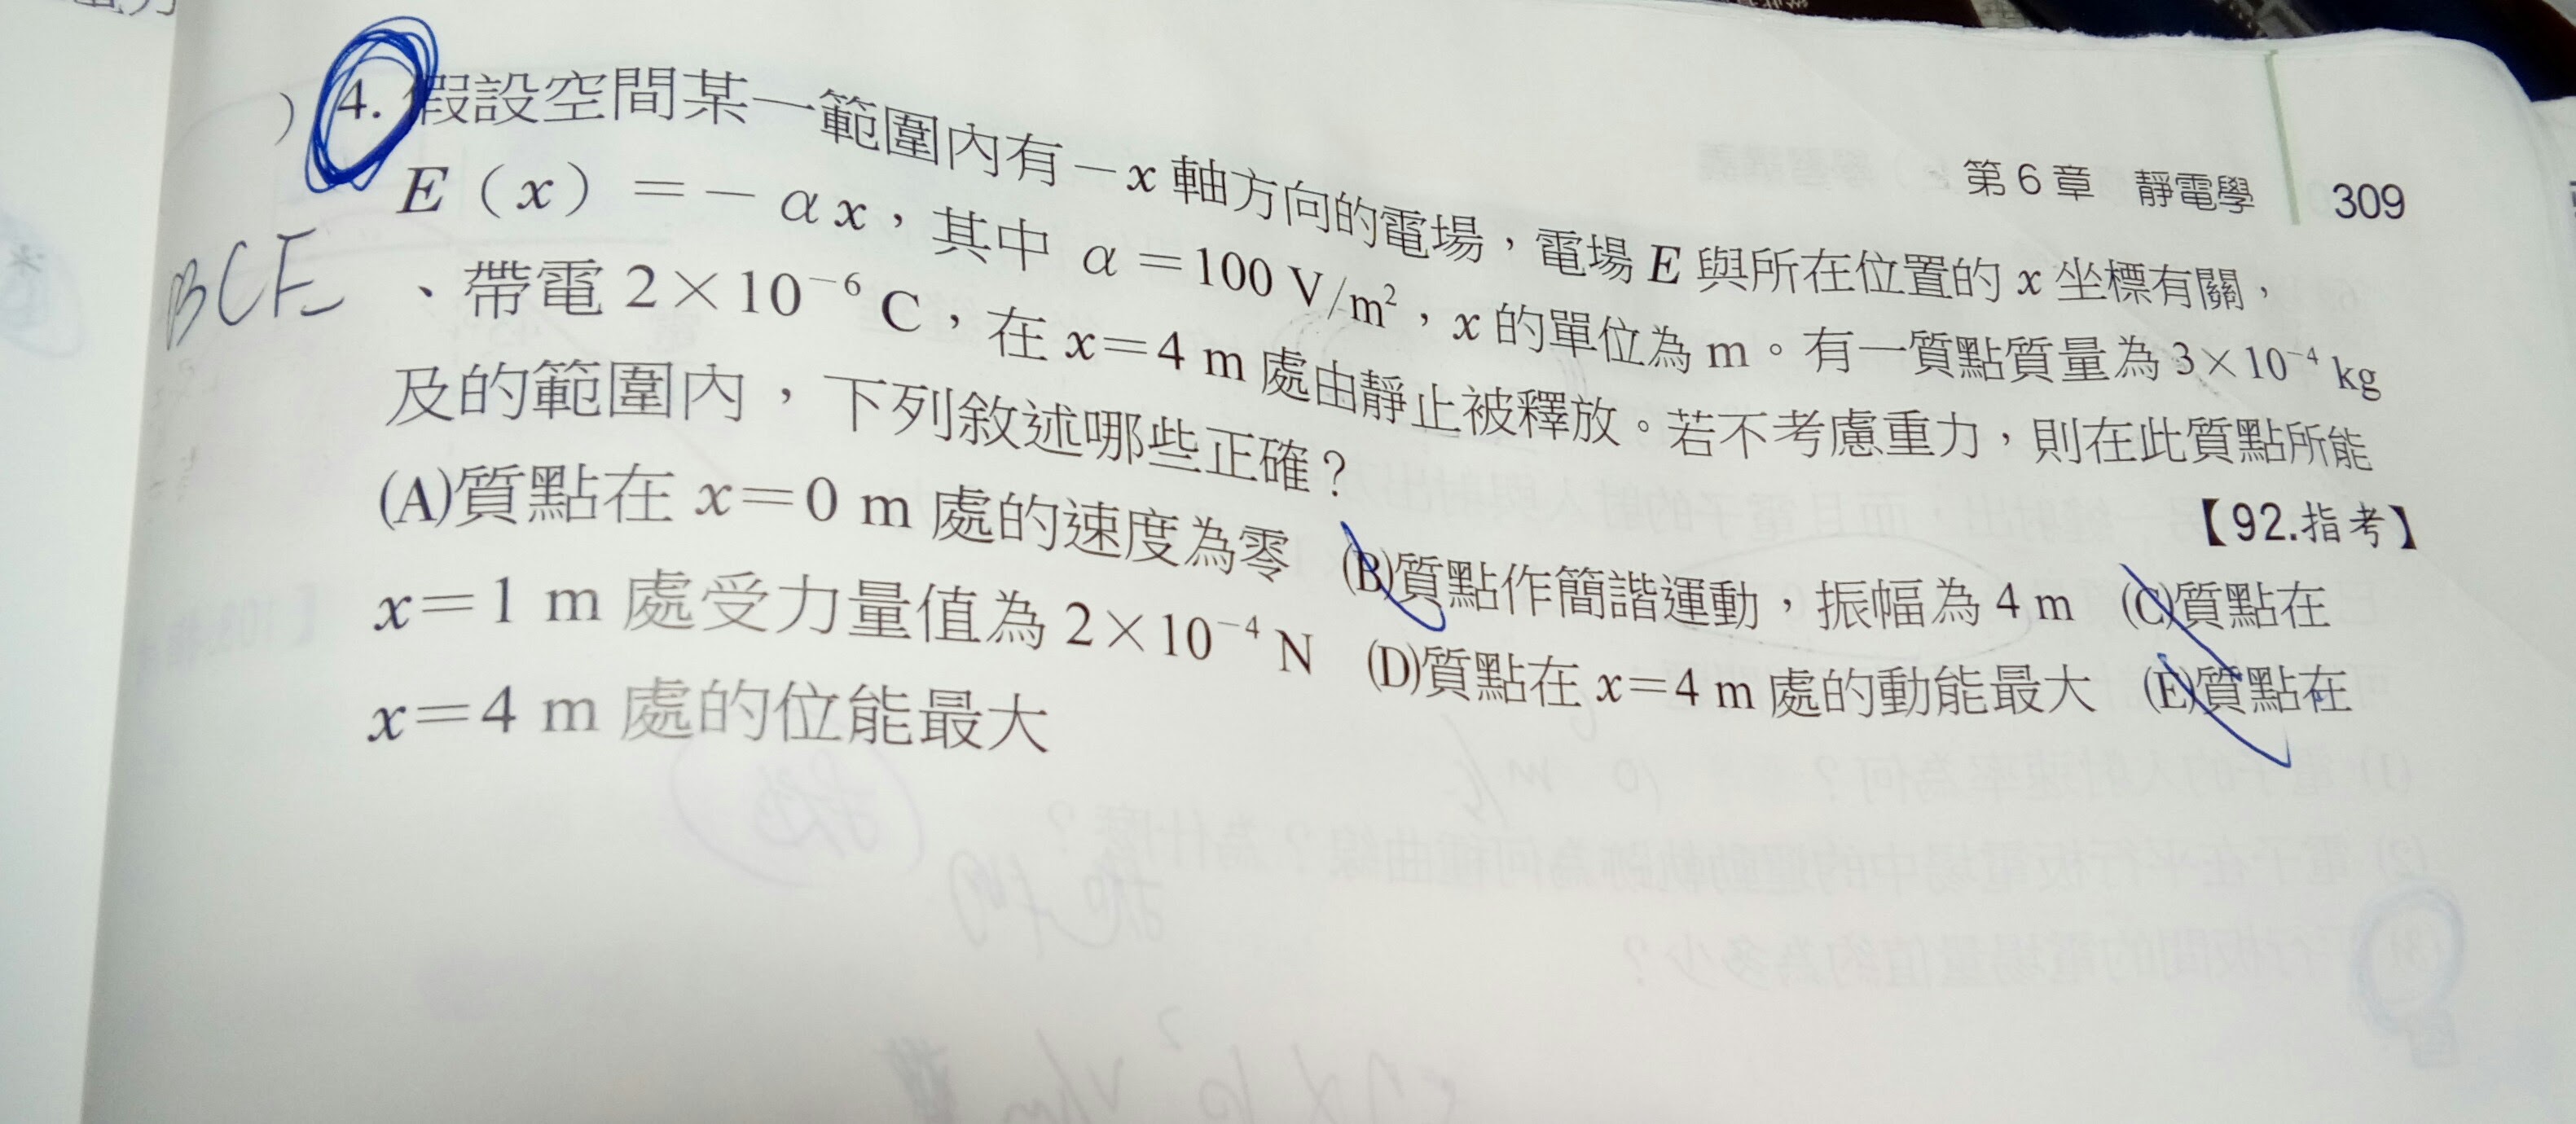 第6章 靜電學 309
4. 假設空間某一範圍內有-x軸方向的電場,電場E與所在位置的x坐標有關,
E(x)=-αx,其中 α=100 V/m²,x的單位為m。有一質點質量為3×10⁻⁴ kg
、帶電2×10⁻⁶ C,在x=4 m處由靜止被釋放。若不考慮重力,則在此質點所能
及的範圍內,下列敘述哪些正確?
【92.指考】
(A)質點在x=0 m處的速度為零 (B)質點作簡諧運動,振幅為4 m (C)質點在
x=1 m處受力量值為2×10⁻⁴ N (D)質點在x=4 m處的動能最大 (E)質點在
x=4 m處的位能最大
BCE